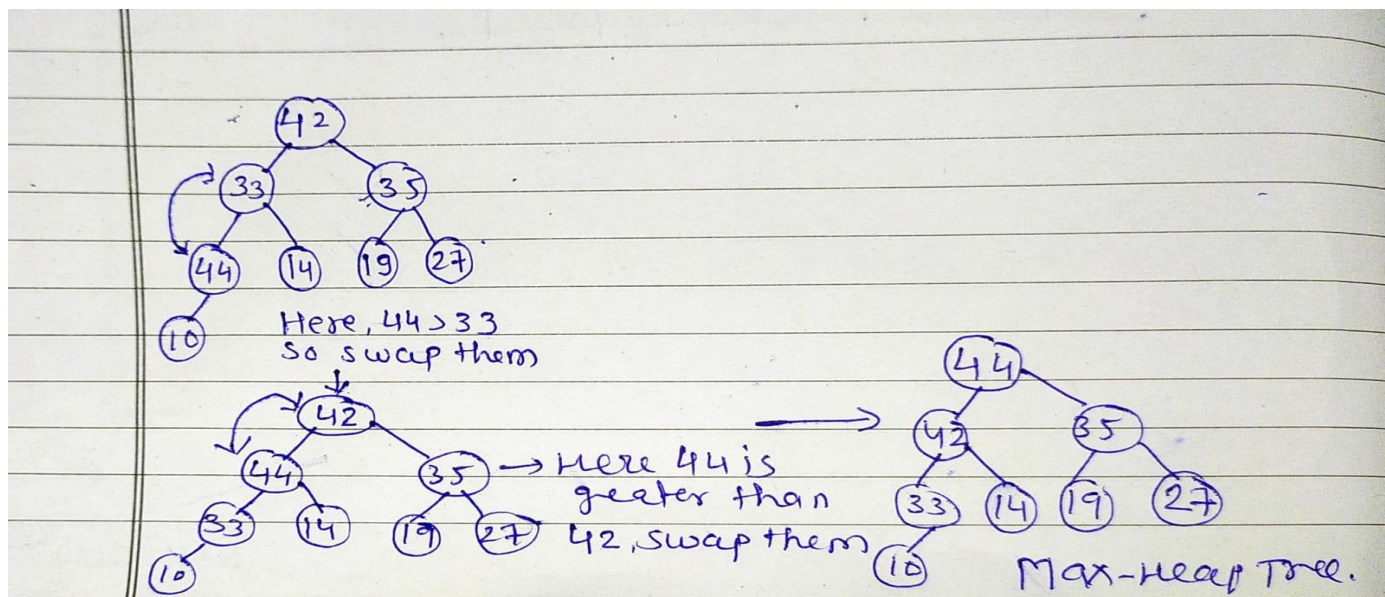 42
33 35
44 14 19 27
10
Here, 44 > 33
So swap them
42
44 35
33 14 19 27
10
→ Here 44 is
greater than
42, swap them
44
42 35
33 14 19 27
10
Max-Heap Tree.